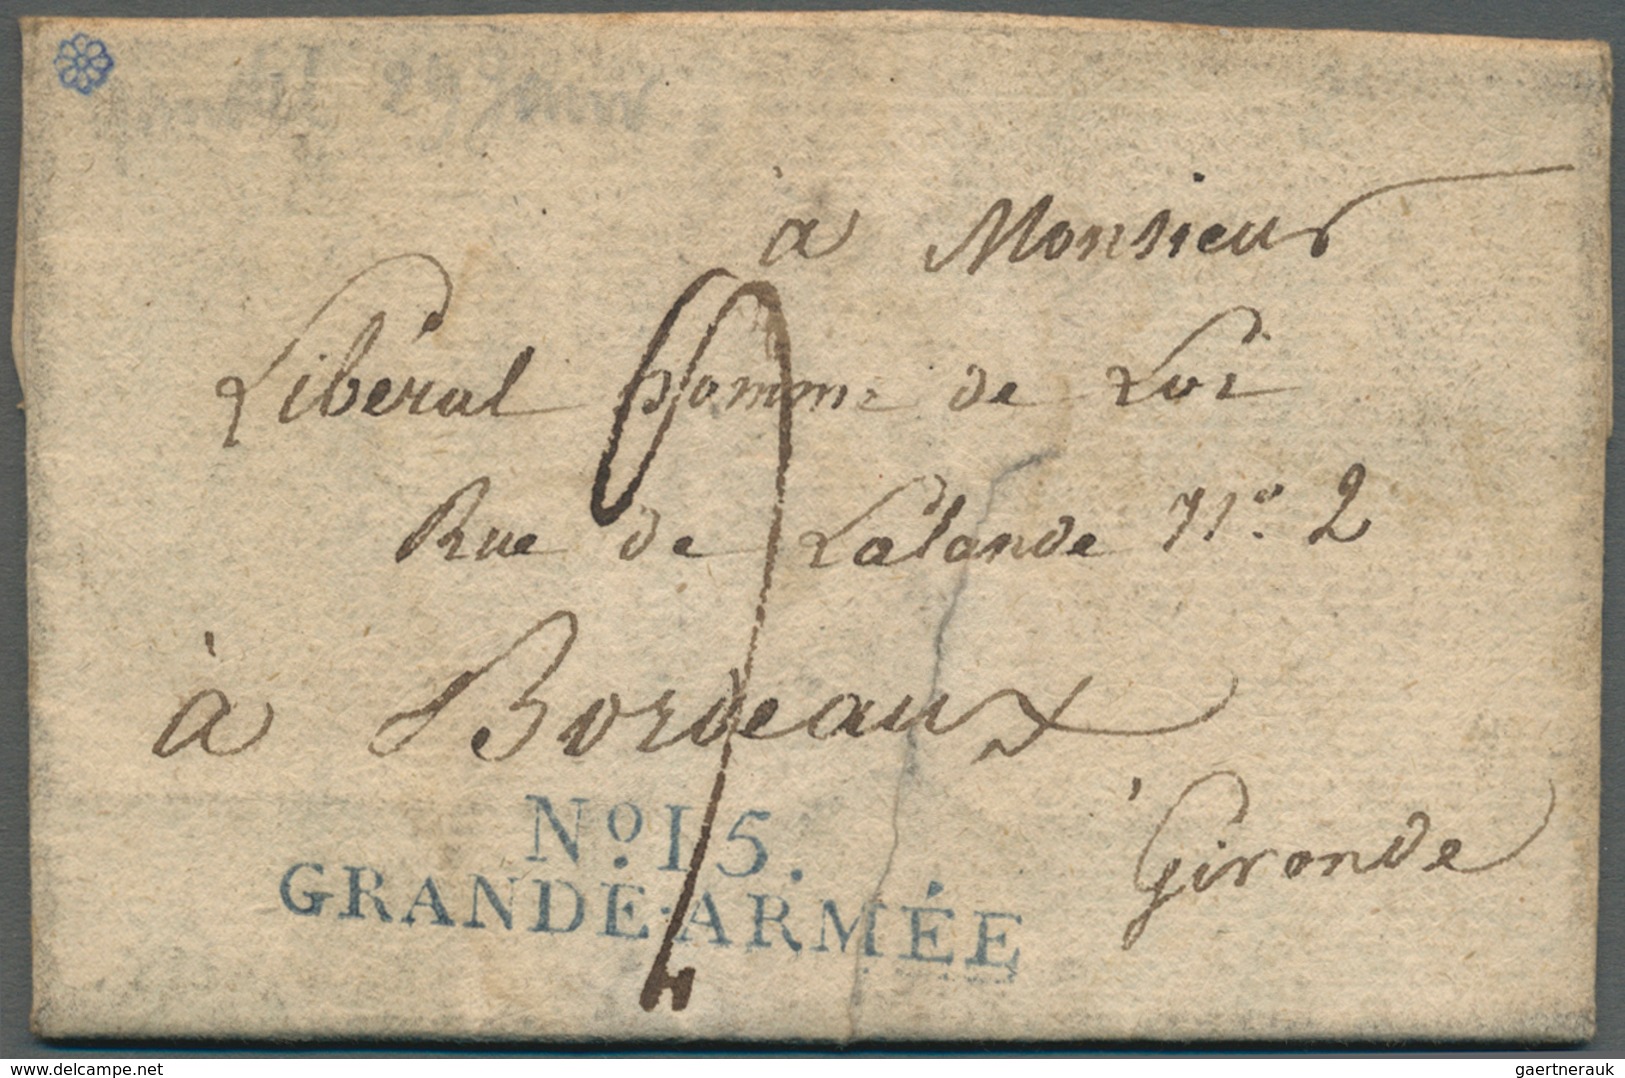 29 Juin
à Monsieur
Libéral homme de Loi
Rue de Lalande N° 2
à Bordeaux
Gironde
Nº. 15.
GRANDE-ARMÉE
delcampe.net
gaertnerauk